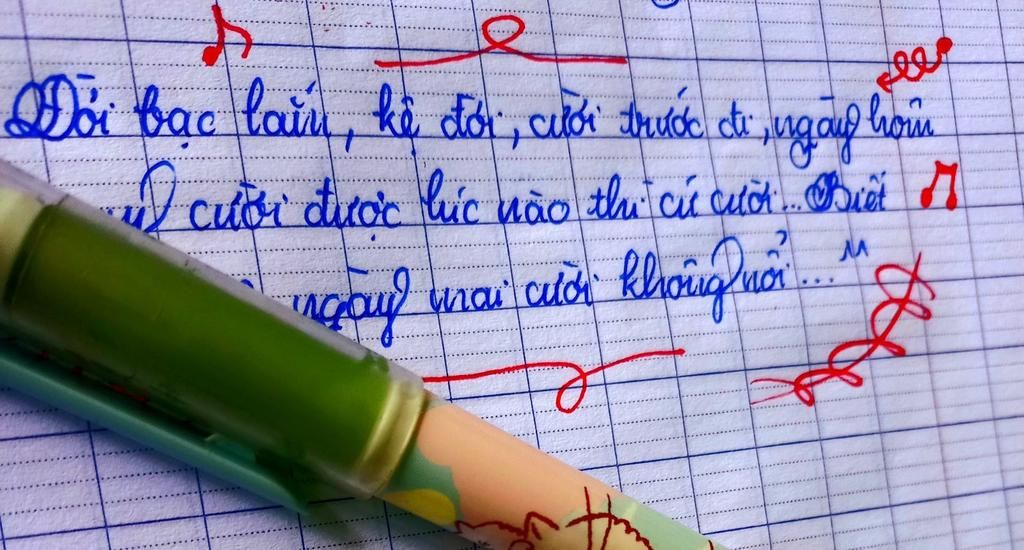 Đời bạc lắm, kệ đời, cười trước đi, ngày hôm
cười được lúc nào thì cứ cười... Biết
ngày mai cười không nổi..."